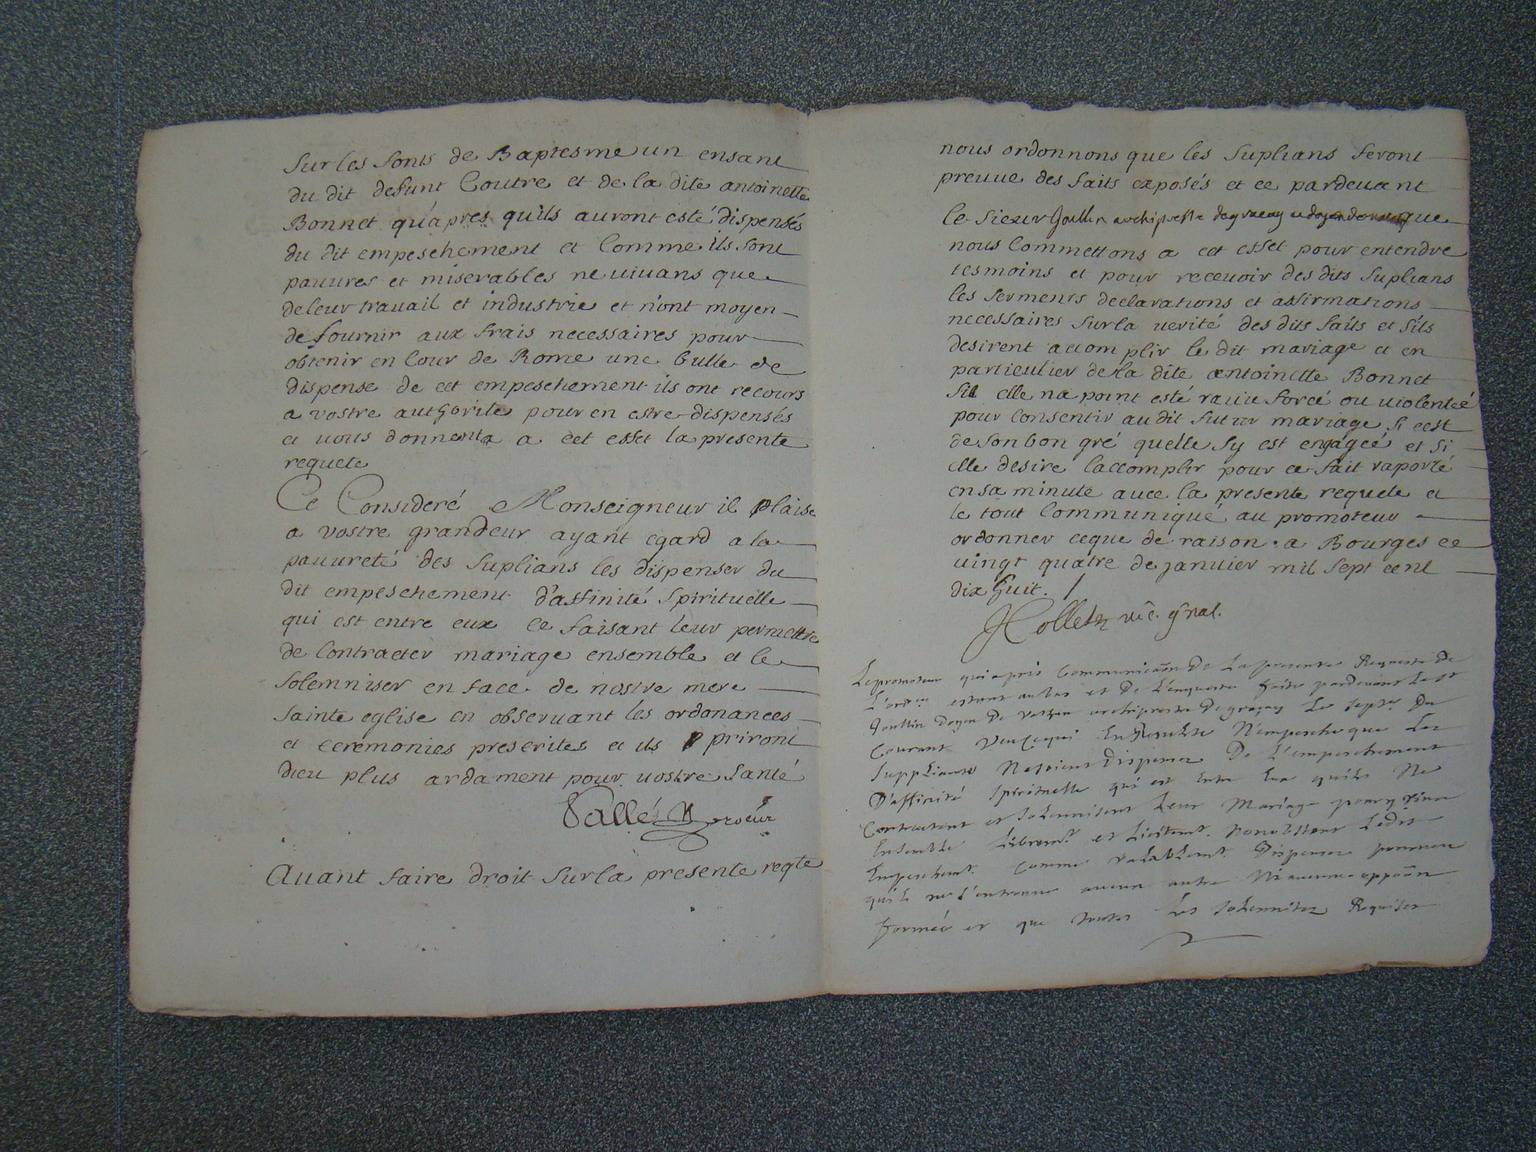 sur les fonts de Baptesme un enfant
du dit defunt Coutre et de la dite antoinette
Bonnet qu'apres qu'ils auront esté dispensés
du dit empeschement et Comme ils sont
pauures et miserables ne uiuans que
de leur trauail et industrie et n'ont moyen
de fournir aux frais necessaires pour
obtenir en Cour de Rome une bulle de
dispense de cet empeschement ils ont recours
a vostre authorite pour en estre dispensés
et uous donnent a cet effet la presente
requete
Ce Consideré Monseigneur il plaise
a vostre grandeur ayant egard a la
pauureté des Suplians les dispenser du
dit empeschement d'affinité spirituelle
qui est entre eux ce faisant leur permettre
de Contracter mariage ensemble et le
solemniser en face de nostre mere
sainte eglise en obseruant les ordonances
et ceremonies prescrites et ils priront
dieu plus ardament pour uostre santé
Vallé
Auant faire droit sur la presente reqte
nous ordonnons que les Suplians feront
preuue des faits exposés et ce pardeuant
le Sieur archiprestre que
nous Commettons a cet effet pour entendre
tesmoins et pour receuoir des dits Suplians
les serments declarations et affirmations
necessaires sur la uerité des dits faits et s'ils
desirent accomplir le dit mariage et en
particulier de la dite antoinette Bonnet
si elle na point esté rauie forcé ou uiolenteé
pour Consentir au dit futur mariage si cest
de son bon gré quelle sy est engageé et si
elle desire laccomplir pour ce fait raporté
en sa minute auec la presente requete et
le tout Communiqué au promoteur
ordonner ceque de raison. a Bourges ce
uingt quatre de januier mil sept cent
dix huit.
vic. gnal.
Le promoteur qui a pris Communicaõn De La presente Requeste De
L'ord.ce estant au bas et De L'enqueste faite pardeuant Le sr
doyen De archiprestre De Le sept.e Du
Courant N'empesche que Les
Suppliants Ne soient dispensez De L'empeschement
D'affinité Spirituelle qui est Entre Eux quils Ne
Contractent et solemnisent Leur Mariage pour y viure
Ensemble Librem.t et Licitem.t nonobstant Ledit
Empeschem.t Comme valablem.t Dispensez pourueu
qu'il ne s'entrouue aucun autre Ni aucune oppoõn
formée et que toutes Les solemnitez Requises